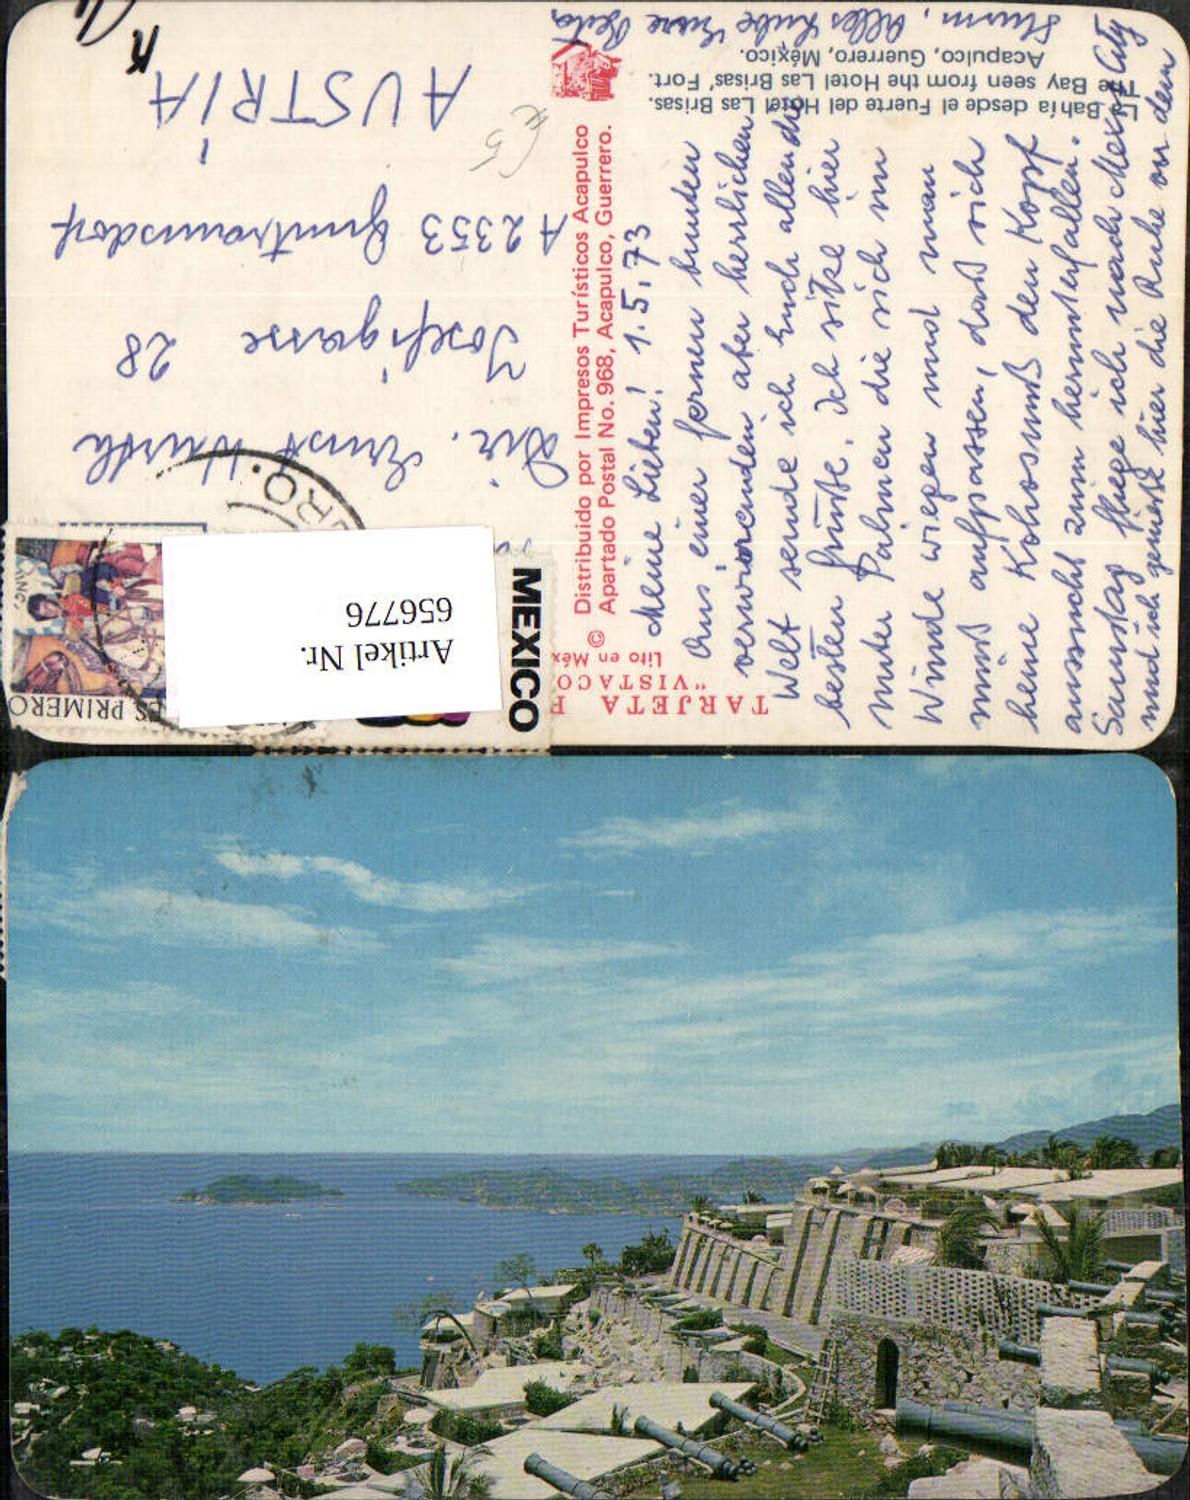 TARJETA
"VISTACO
Lito en Méx
©
Distribuido por Impresos Turísticos Acapulco
Apartado Postal No. 968, Acapulco, Guerrero.
La Bahía desde el Fuerte del Hotel Las Brisas.
The Bay seen from the Hotel Las Brisas' Fort.
Acapulco, Guerrero, México.
Meine Lieben! 1.5.73
Aus einer fernen bunten
verwirrenden aber herrlichen
Welt sende ich Euch allen die
besten Grüße. Ich sitze hier
unter Palmen die sich im
Winde wiegen und man
muß aufpassen, daß sich
keine Kokosnuß den Kopf
aussucht zum herunterfallen.
Samstag fliege ich nach Mexico City
und ich genieße hier die Ruhe vor dem
Sturm. Alles Liebe Eure
MEXICO
ES PRIMERO
RO.
Artikel Nr.
656776
Dir. Ernst
Josefigasse 28
A 2353 Guntramsdorf
AUSTRIA
€5